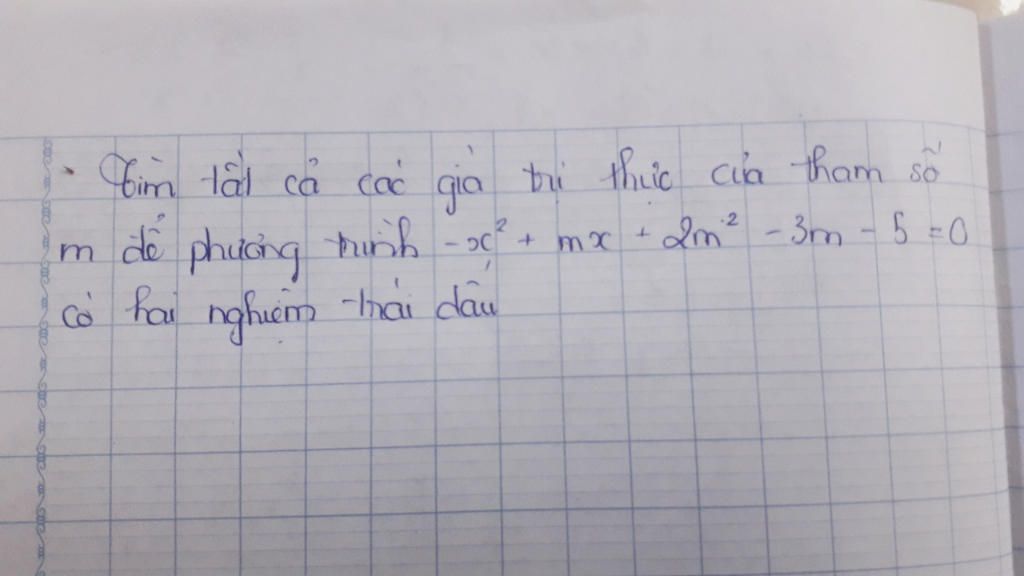 Tìm tất cả các giá trị thực của tham số
m để phương trình -x² + mx + 2m² - 3m - 5 = 0
có hai nghiệm trái dấu